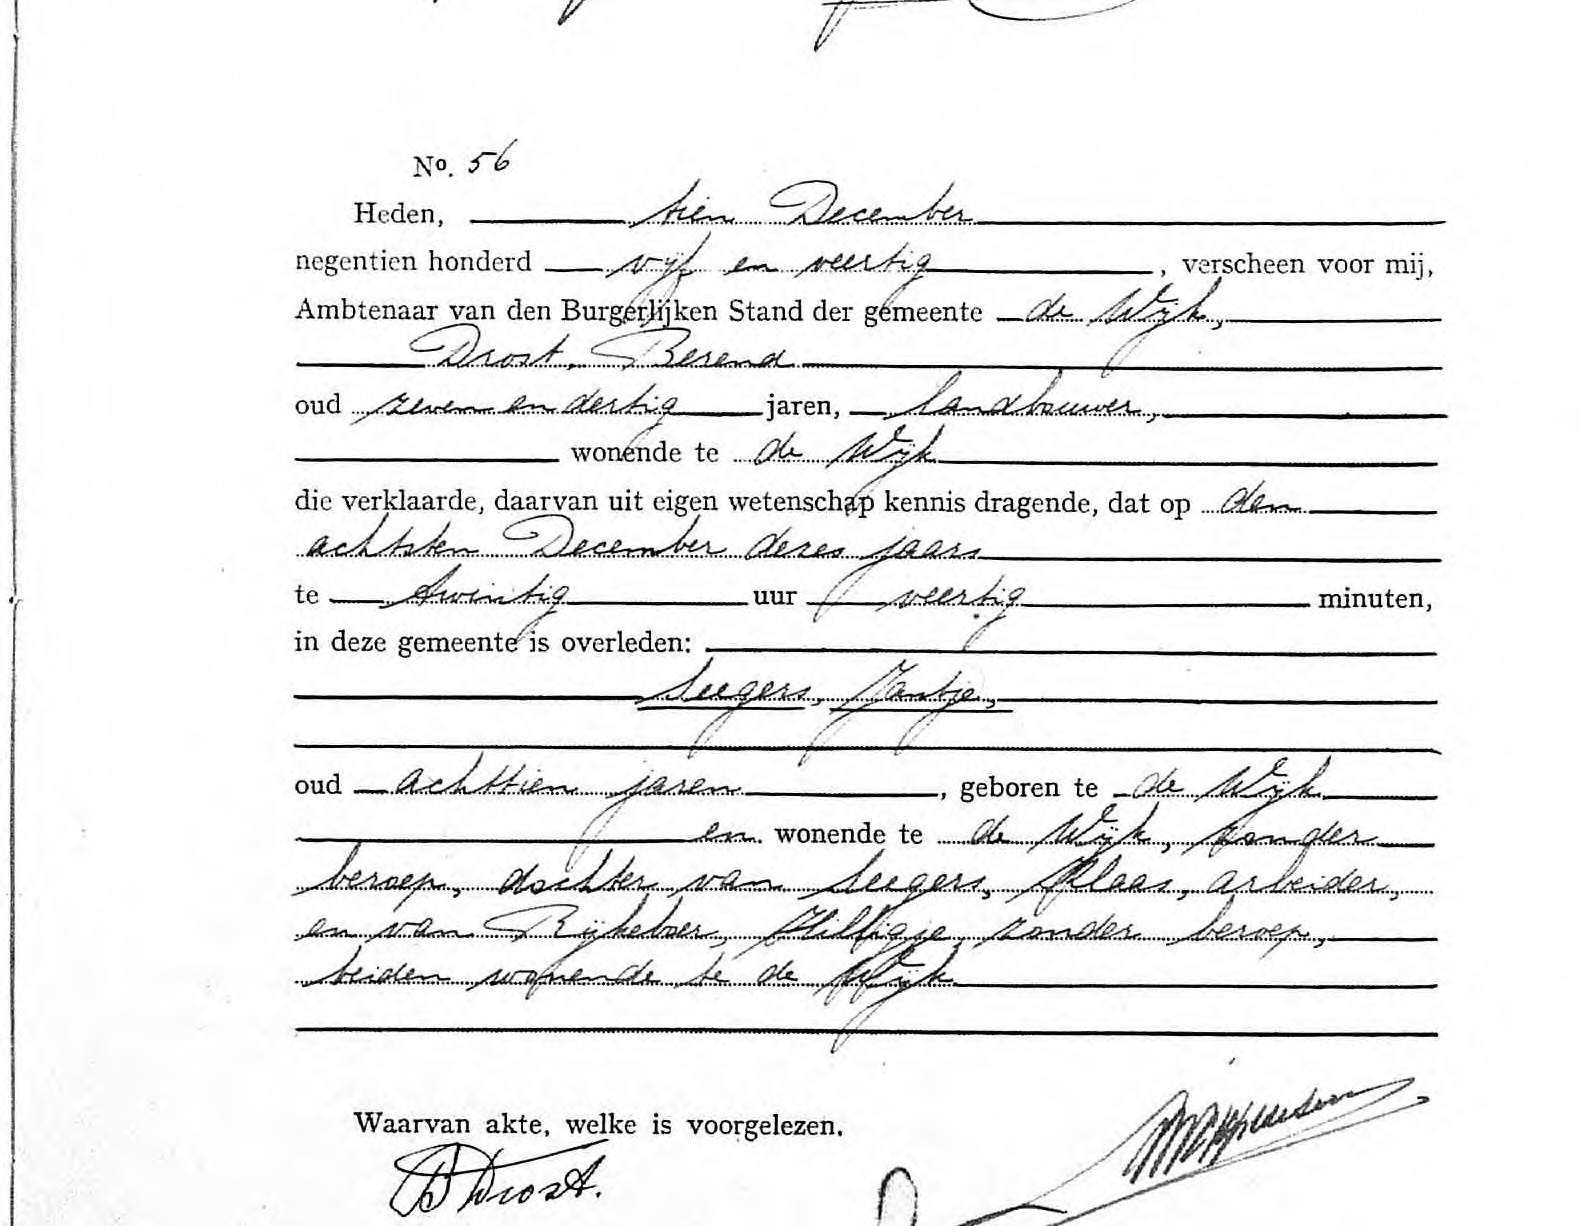 No. 56
Heden, tien December
negentien honderd vijf en veertig, verscheen voor mij,
Ambtenaar van den Burgerlijken Stand der gemeente de Wijk,
Drost, Berend
oud zeven en dertig jaren, landbouwer,
wonende te de Wijk
die verklaarde, daarvan uit eigen wetenschap kennis dragende, dat op den
achtsten December dezes jaars
te twintig uur veertig minuten,
in deze gemeente is overleden:
Seegers, Jantje,
oud achttien jaren, geboren te de Wijk
en wonende te de Wijk, zonder
beroep, dochter van Seegers, Klaas, arbeider,
en van Rijkeboer, Hilligje, zonder beroep,
beiden wonende te de Wijk
Waarvan akte, welke is voorgelezen.
B Drost.